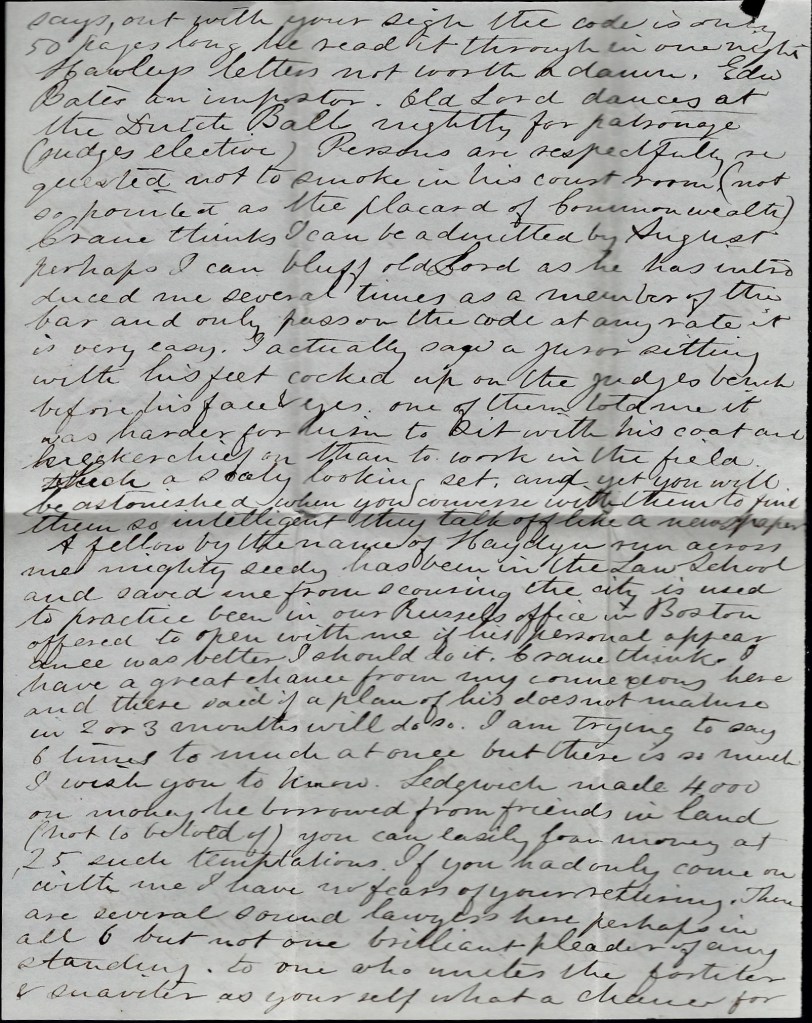 says, out with your sigh the code is only
50 pages long he read it through in one night
Hawleys letters not worth a damn. Edw
Bates an impostor. Old Lord dances at
the Dutch Balls nightly for patronage
(judges elective) Persons are respectfully re
quested not to smoke in his court room (not
so pointed as the placard of Commonwealth)
Crane thinks I can be admitted by August
perhaps I can bluff old Lord as he has intro
duced me several times as a member of the
bar and only pass on the code at any rate it
is very easy. I actually saw a juror sitting
with his feet cocked up on the judges bench
before his face & eyes. one of them told me it
was harder for him to sit with his coat and
on than to work in the field.
a looking set, and yet you will
be astonished when you converse with them to find
them so intelligent they talk off like a newspaper
A fellow by the name of Haydyn run across
me mighty seedy has been in the Law School
and saved me from scouring the city is used
to practice been in our Russels office in Boston
offered to open with me if his personal appear
ance was better I should do it. Crane thinks I
have a great chance from my connexions here
and there said if a plan of his does not mature
in 2 or 3 months will do so. I am trying to say
6 times to much at once but there is so much
I wish you to know. Sedgwick made 4000
on money he borrowed from friends in land
(not to be told of) you can easily loan money at
,25 such temptations. If you had only come on
with me I have no fears of your returning. There
are several sound lawyers here perhaps in
all 6 but not one brilliant pleader of any
standing. to one who unites the fortiter
& suaviter as yourself what a chance for